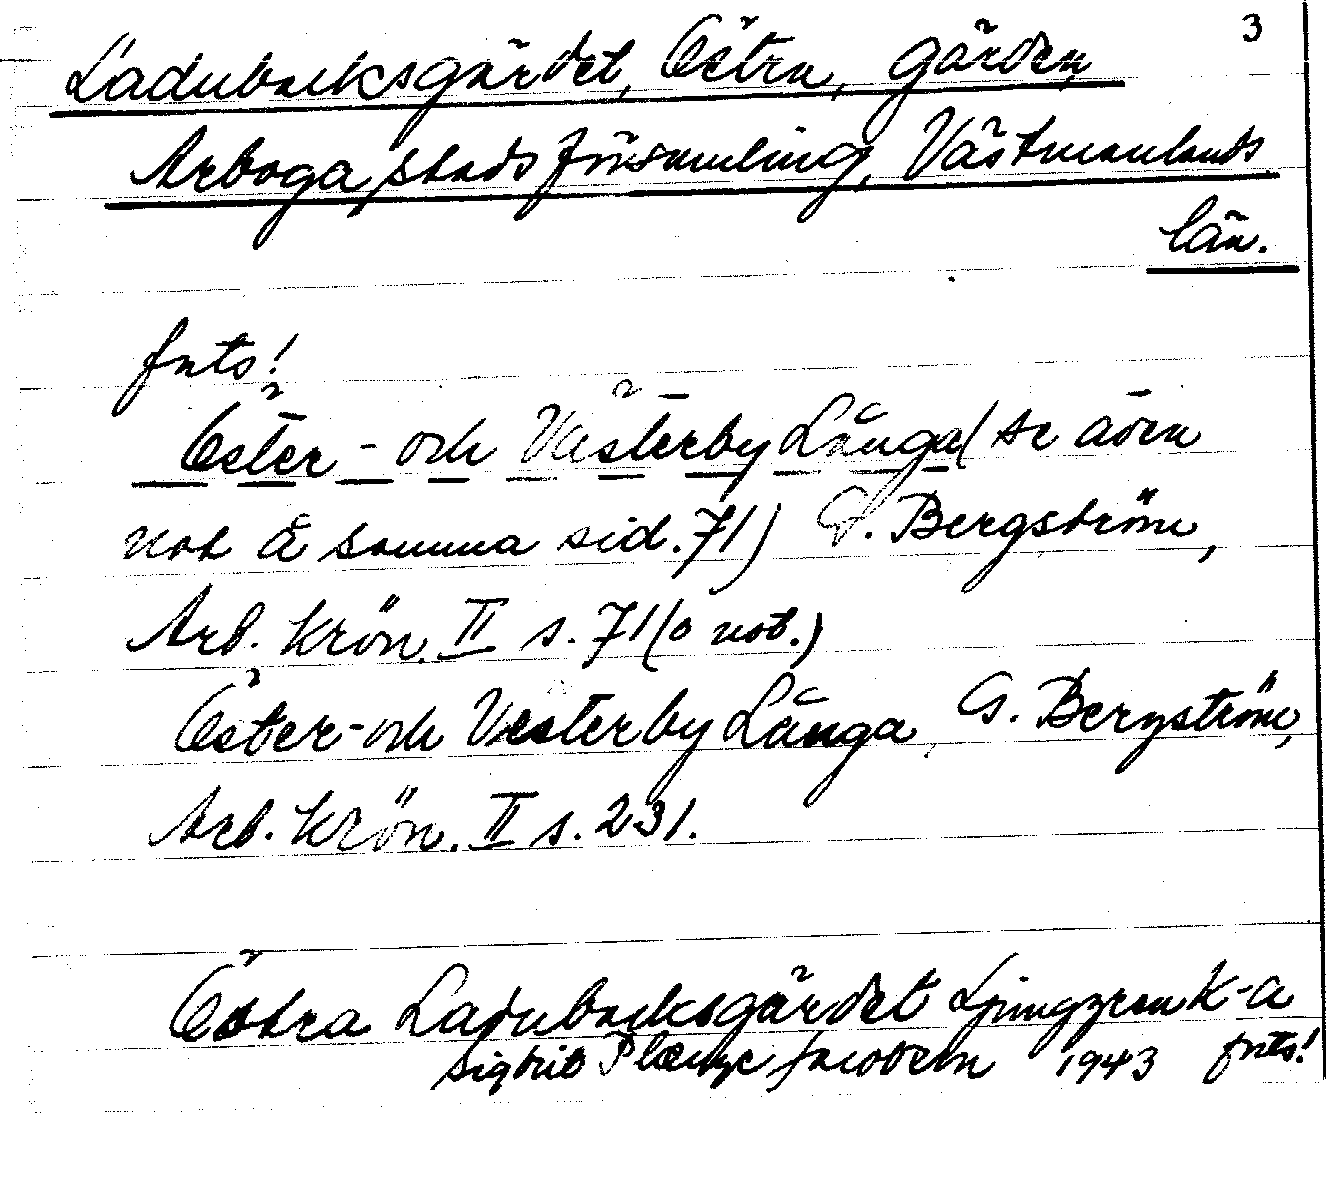 3
Ladubacksgärdet, Östra, gärden,
Arboga stadsförsamling, Västmanlands
län.
forts!
Öster- och Västerby Långa (se även
not å samma sid. 71) G. Bergström,
Arb. Krön. II s. 71 (o not.)
Öster- och Vesterby Långa, G. Bergström,
Arb. Krön. II s. 231.
Östra Ladubacksgärdet Ljunggren K-a
Sigbrit Plænge Jacobson 1943 forts!